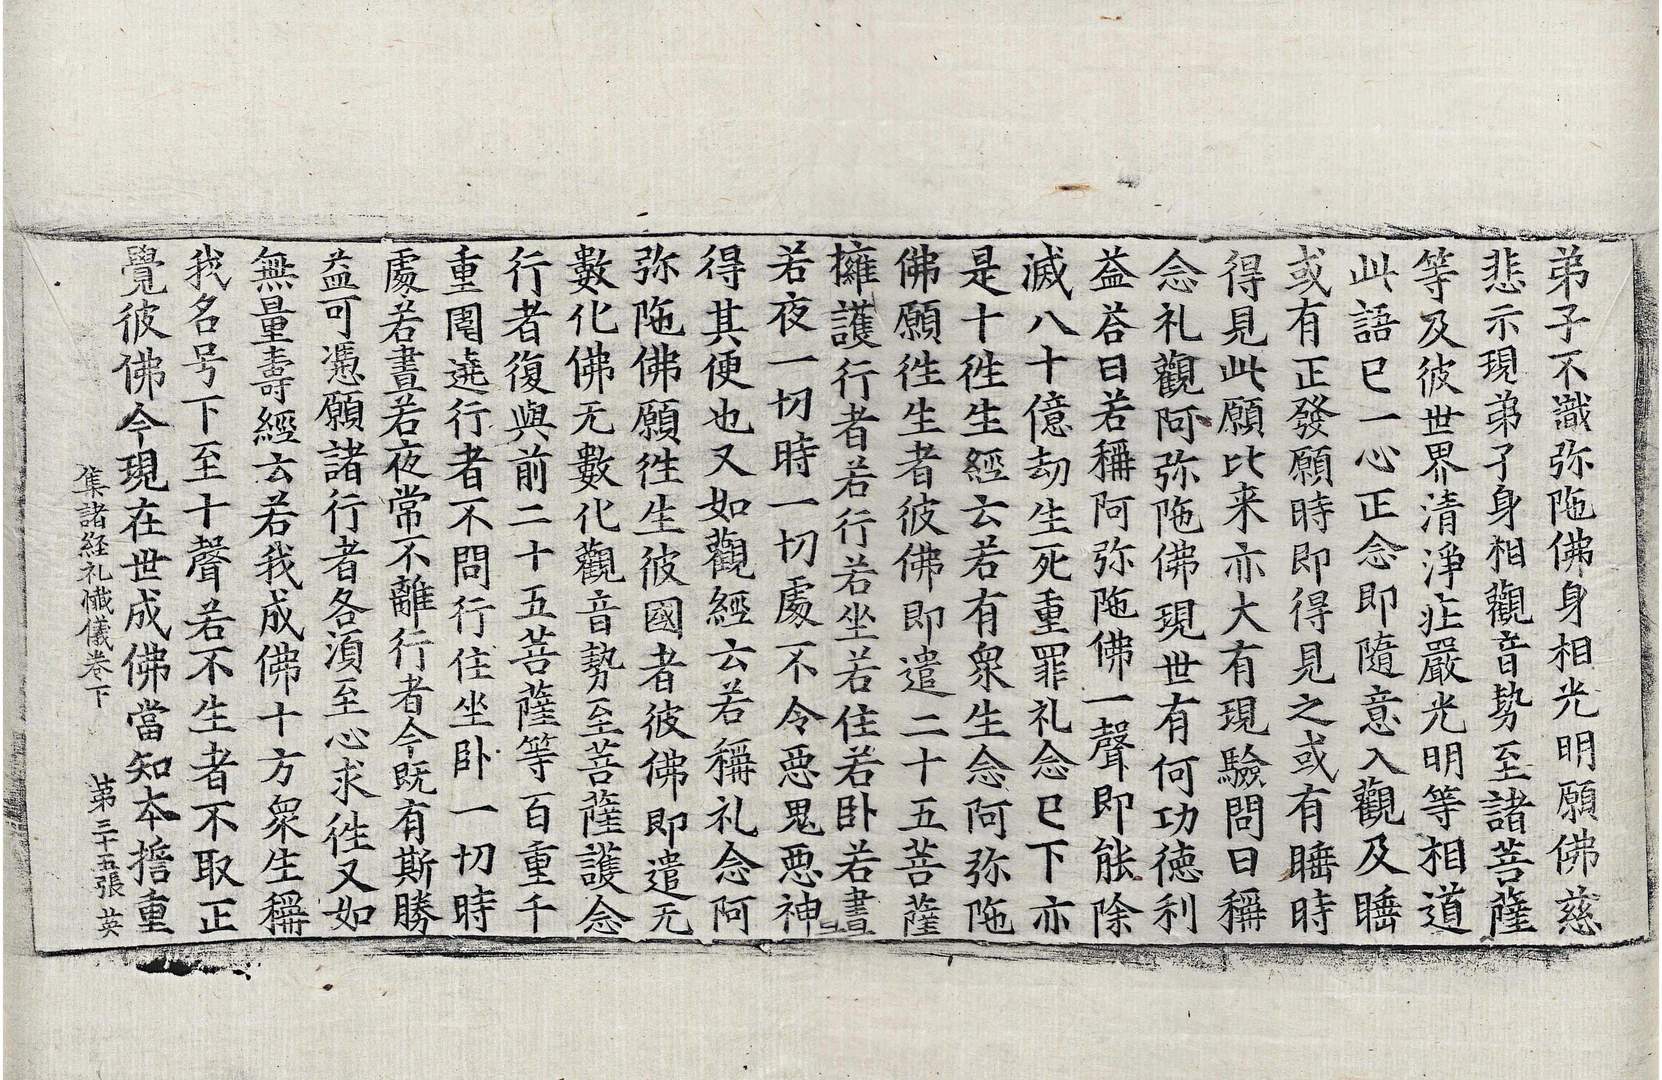 弟子不識弥陁佛身相光明願佛慈
悲示現弟子身相觀音勢至諸菩薩
等及彼世界清淨庄嚴光明等相道
此語已一心正念即隨意入觀及睡
或有正發願時即得見之或有睡時
得見此願比来亦大有現驗問曰稱
念礼觀阿弥陁佛現世有何功德利
益荅曰若稱阿弥陁佛一聲即能除
滅八十億劫生死重罪礼念已下亦
是十徃生經云若有衆生念阿弥陁
佛願徃生者彼佛即遣二十五菩薩
擁護行者若行若坐若住若卧若晝
若夜一切時一切處不令惡鬼惡神
得其便也又如觀經云若稱礼念阿
弥陁佛願徃生彼國者彼佛即遣无
數化佛无數化觀音勢至菩薩護念
行者復與前二十五菩薩等百重千
重圍遶行者不問行住坐卧一切時
處若晝若夜常不離行者今既有斯勝
益可憑願諸行者各湏至心求徃又如
無量壽經云若我成佛十方衆生稱
我名号下至十聲若不生者不取正
覺彼佛今現在世成佛當知本擔重
集諸経礼懺儀卷下　苐三十五張　英